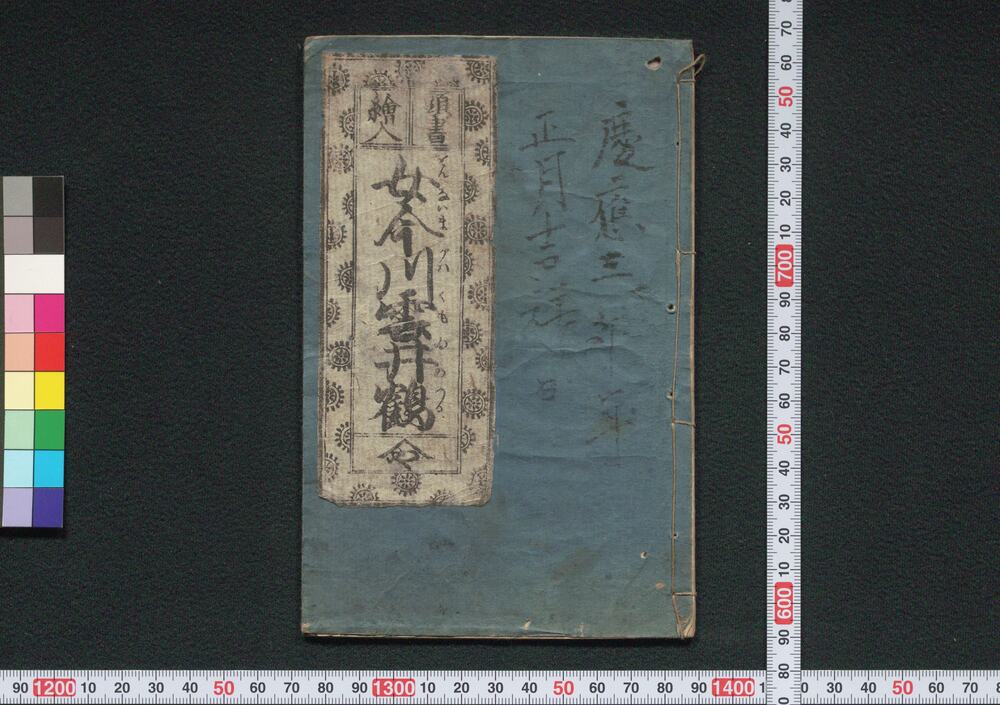 慶應三
正月吉
頭書
繪入
女今川雲井鶴
をんないまがハくもゐのつる
50
60
70
80
90
700
10
20
30
40
50
60
70
80
90
600
10
20
30
40
50
60
70
80
90 1200 10 20 30 40 50 60 70 80 90 1300 10 20 30 40 50 60 70 80 90 1400
30 40 50 60 70